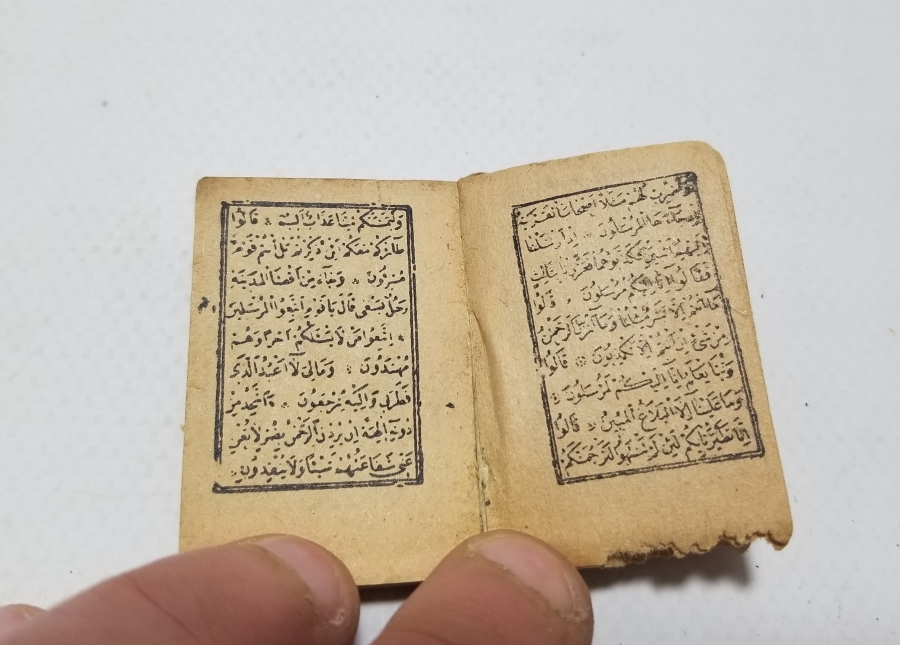 واضرب لهم مثلا اصحاب القرية
اذ جاءها المرسلون ۞ اذ ارسلنا
اليهم اثنين فكذبوهما فعززنا بثالث
فقالوا انا اليكم مرسلون ۞ قالوا
ما انتم الا بشر مثلنا وما انزل الرحمن
من شئ ان انتم الا تكذبون ۞ قالوا
ربنا يعلم انا اليكم لمرسلون ۞
وما علينا الا البلاغ المبين ۞ قالوا
انا تطيرنا بكم لئن لم تنتهوا لنرجمنكم
وليمسنكم منا عذاب اليم ۞ قالوا
طائركم معكم ائن ذكرتم بل انتم قوم
مسرفون ۞ وجاء من اقصا المدينة
رجل يسعى قال يا قوم اتبعوا المرسلين
۞ اتبعوا من لا يسئلكم اجرا وهم
مهتدون ۞ ومالى لا اعبد الذى
فطرنى واليه ترجعون ۞ ءاتخذ من
دونه الهة ان يردن الرحمن بضر لا تغن
عنى شفاعتهم شيئا ولا ينقذون